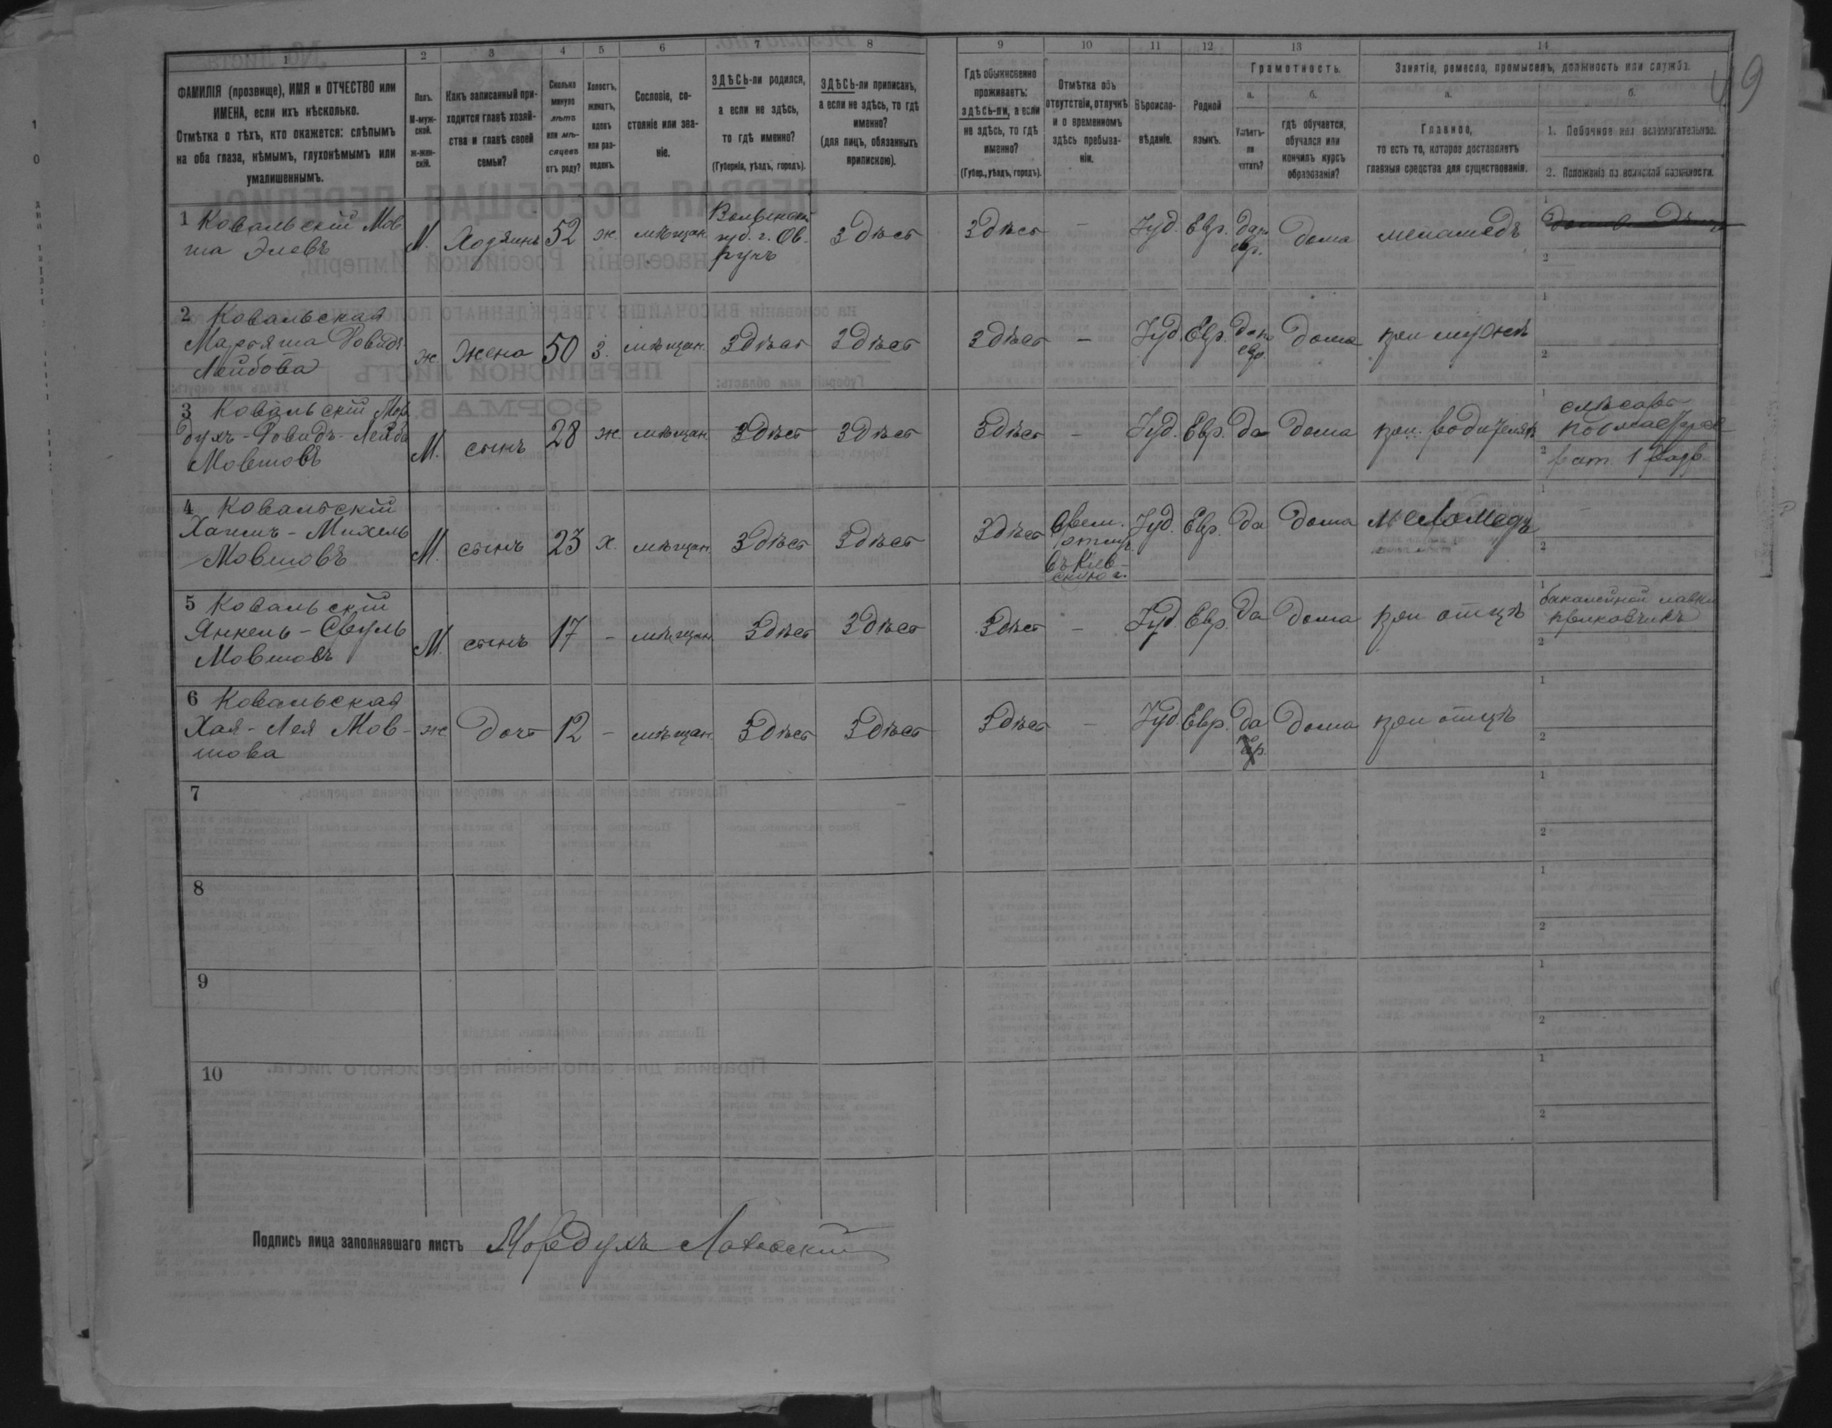 49
1 2 3 4 5 6 7 8 9 10 11 12 13 14
ФАМИЛІЯ (прозвище), ИМЯ и ОТЧЕСТВО или
ИМЕНА, если ихъ нѣсколько.
Отмѣтка о тѣхъ, кто окажется: слѣпымъ
на оба глаза, нѣмымъ, глухонѣмымъ или
умалишеннымъ.
Полъ.
М-муж-
ской.
Ж-жен-
скій.
Какъ записанный при-
ходится главѣ хозяй-
ства и главѣ своей
семьи?
Сколько
минуло
лѣтъ
или мѣ-
сяцевъ
отъ роду?
Холостъ,
женатъ,
вдовъ
или раз-
веденъ.
Сословіе, со-
стояніе или зва-
ніе.
ЗДѢСЬ-ли родился,
а если не здѣсь,
то гдѣ именно?
(Губернія, уѣздъ, городъ).
ЗДѢСЬ-ли приписанъ,
а если не здѣсь, то гдѣ
именно?
(для лицъ, обязанныхъ
припискою).
Гдѣ обыкновенно
проживаетъ:
здѣсь-ли, а если
не здѣсь, то гдѣ
именно?
(Губер., уѣздъ, городъ).
Отмѣтка объ
отсутствіи, отлучкѣ
и о временномъ
здѣсь пребыва-
ніи.
Вѣроиспо-
вѣданіе.
Родной
языкъ.
Грамотность.
а.
Умѣетъ-
ли
читать?
б.
гдѣ обучается,
обучался или
кончилъ курсъ
образованія?
Занятіе, ремесло, промыселъ, должность или служба.
а.
Главное,
то есть то, которое доставляетъ
главныя средства для существованія.
б.
1. Побочное или вспомогательное.
2. Положеніе по воинской повинности.
1 Ковальскій Мов
ша Элевъ
М. Хозяинъ 52 ж мѣщан.
Волынской
губ. г. Ов-
ручъ
Здѣсь Здѣсь - Іуд. Евр. да
евр. дома меламедъ
1
2
2 Ковальская
Марьяша Довидъ
Лейбова
ж жена 50 з. мѣщан. Здѣсь Здѣсь Здѣсь - Іуд. Евр. да
евр. дома при мужѣ
1
2
3 Ковальскій Мор
духъ-Довидъ-Лейба
Мовшовъ
М. сынъ 28 ж мѣщан. Здѣсь Здѣсь Здѣсь - Іуд. Евр. да дома при родителяхъ
1 слѣсарь
2 рат. 1 разр.
4 Ковальскій
Хаимъ-Михель
Мовшовъ
М. сынъ 23 х. мѣщан. Здѣсь Здѣсь Здѣсь
въ Кіев-
скую г.
Іуд. Евр. да дома меламедъ
1
2
5 Ковальскій
Янкель-Сруль
Мовшовъ
М. сынъ 17 - мѣщан. Здѣсь Здѣсь Здѣсь - Іуд. Евр. да дома при отцѣ
1 бакалейной лавки
прикащикъ
2
6 Ковальская
Хая-Лея Мов-
шова
ж дочь 12 - мѣщан. Здѣсь Здѣсь Здѣсь - Іуд. Евр. да дома при отцѣ
1
2
7
1
2
8
1
2
9
1
2
10
1
2
Подпись лица заполнявшаго листъ Мордухъ